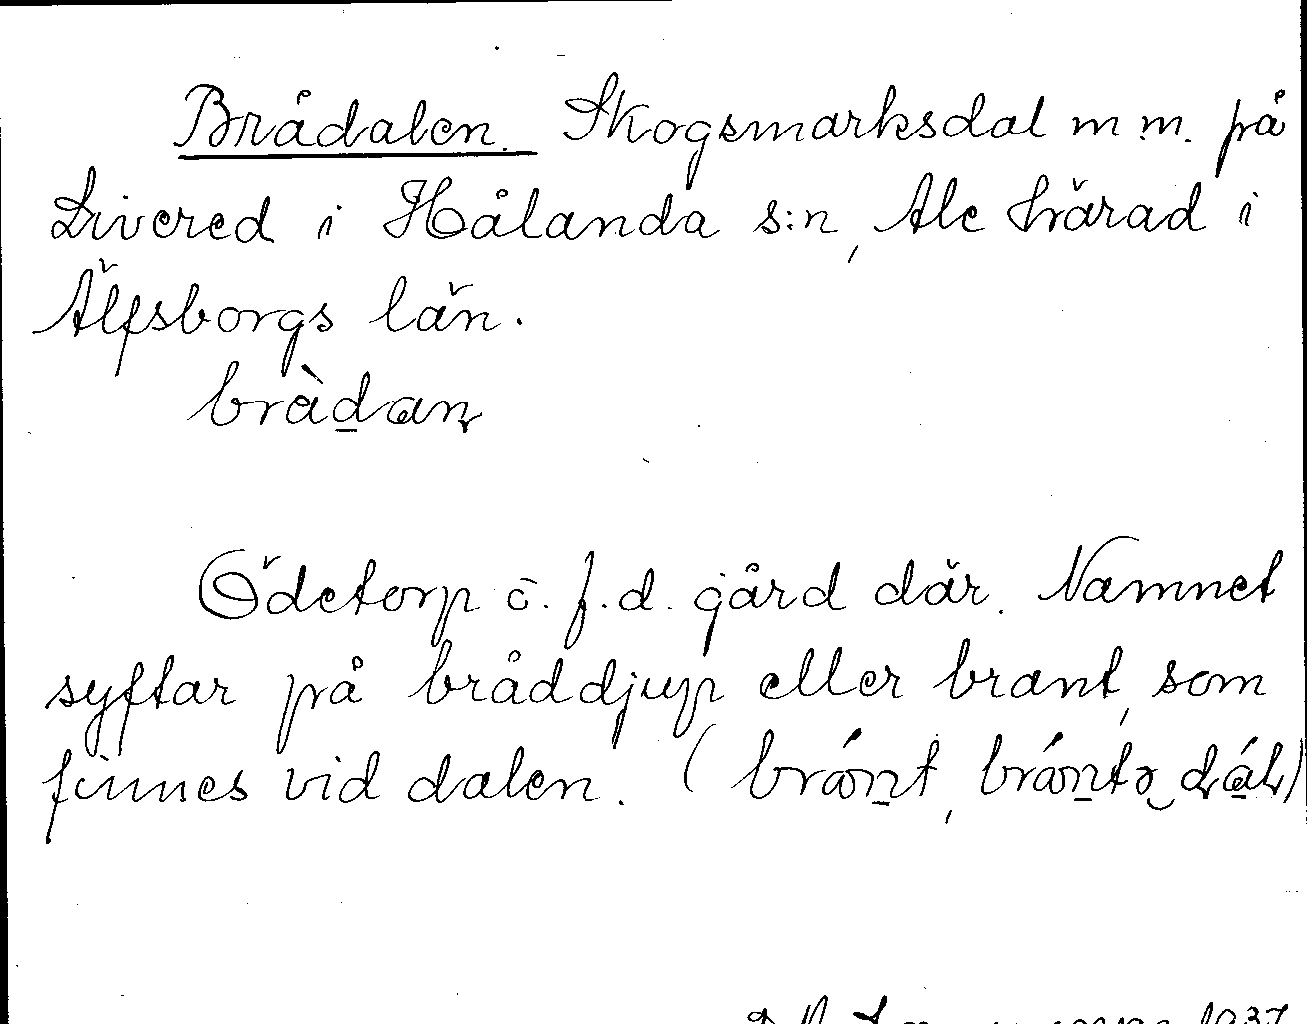 Brådalen. Skogsmarksdal m.m. på
Livered i Hålanda s:n, Ale härad i
Älfsborgs län.
bràdan
Ödetorp o. f.d. gård där. Namnet
syftar på bråddjup eller brant, som
finnes vid dalen. (
1937